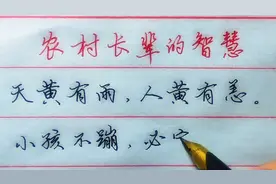 农村长辈的智慧
天黄有雨，人黄有恙。
小孩不蹦，必